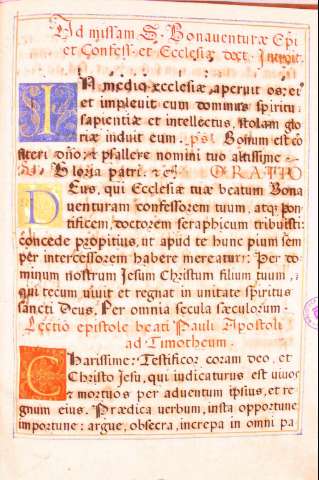 Ad missam S. Bonauenturæ Epi
et Confess. et Ecclesiæ doct. Introit.
IN medio ecclesiæ aperuit os, ei
et impleuit eum dominus spiritu
sapientiæ et intellectus, stolam glo
riæ induit eum. psl. Bonum est co
fiteri dño, et psallere nomini tuo altissime
Gloria patri. ORATIO
DEus, qui Ecclesiæ tuæ beatum Bona
uenturam confessorem tuum, atq; pon
tificem, doctorem seraphicum tribuisti:
concede propitius, ut apud te hunc pium sem
per intercessorem habere mereatur: Per do
minum nostrum Jesum Christum filium tuum,
qui tecum uiuit et regnat in unitate spiritus
sancti Deus. Per omnia secula sæculorum.
Lectio epistole beati Pauli Apostoli
ad Timotheum.
CHarissime: Testificor coram deo, et
Christo Jesu, qui iudicaturus est uiuos
et mortuos per aduentum ipsius, et re
gnum eius. Prædica verbum, insta opportune
importune: argue, obsecra, increpa in omni pa